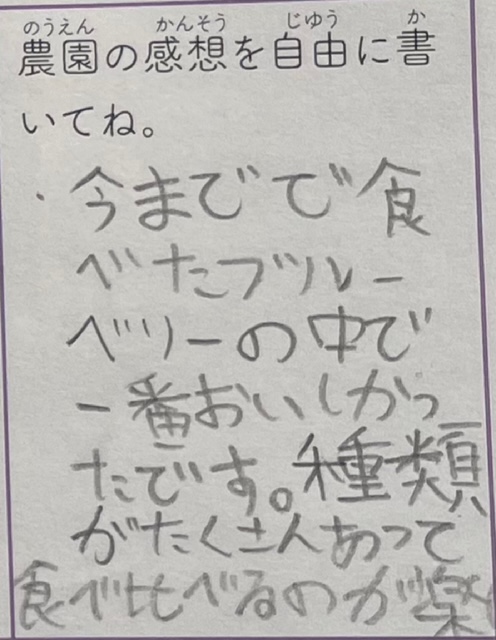 のうえん かんそう じゆう か
農園の感想を自由に書
いてね。
・今まででで食
べたブルー
ベリーの中で
一番おいしかっ
たです。種類
がたくさんあって
食べ比べるのが楽